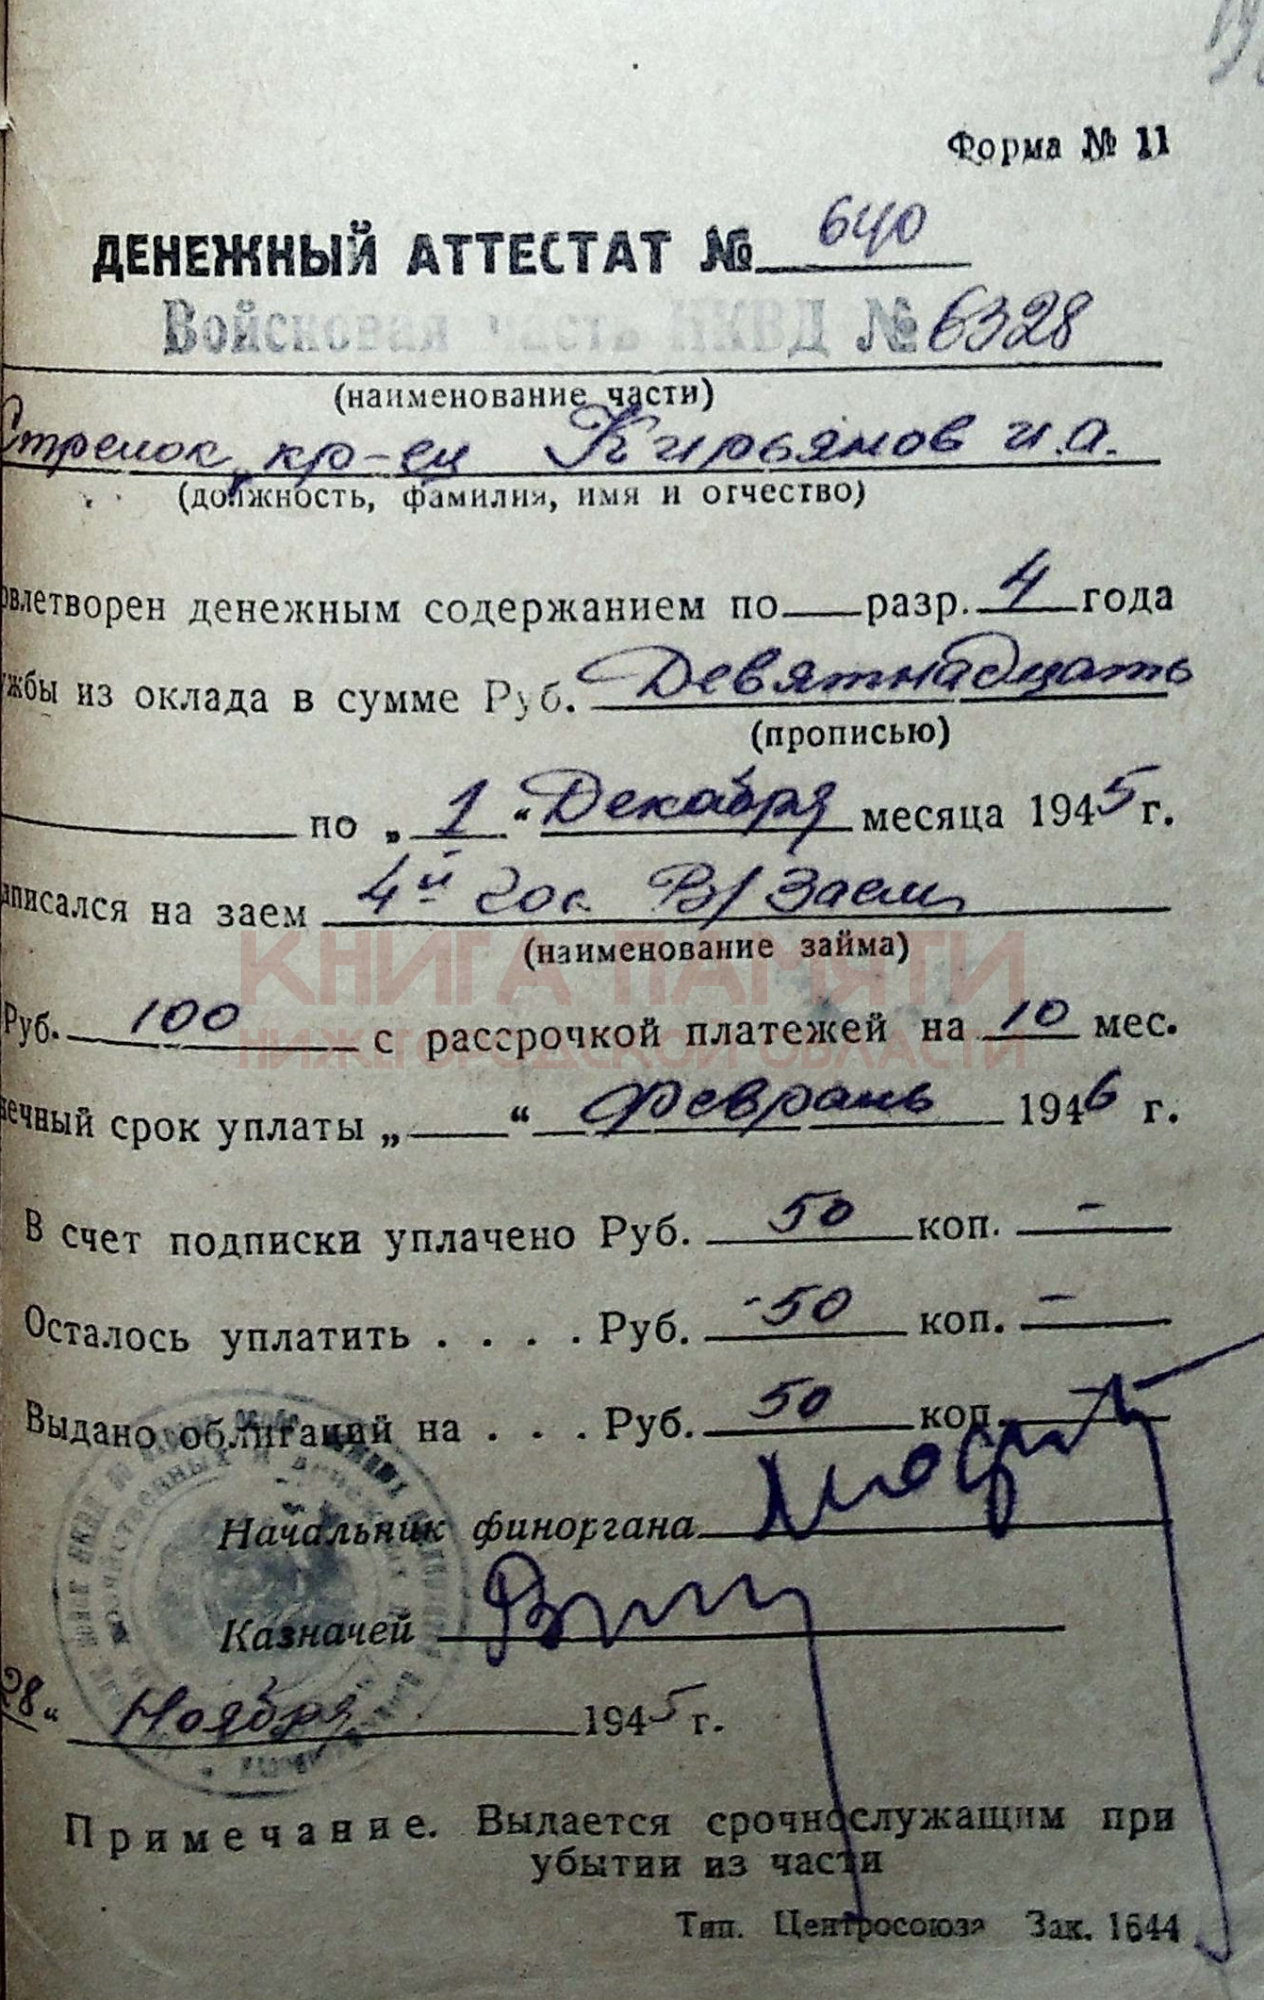 Форма № 11
ДЕНЕЖНЫЙ АТТЕСТАТ № 640
Войсковая часть НКВД № 6328
(наименование части)
Стрелок, кр-ец Кирьянов И.А.
(должность, фамилия, имя и отчество)
овлетворен денежным содержанием по разр. 4 года
ужбы из оклада в сумме Руб. Девятнадцать
(прописью)
по „ 1 “ Декабря месяца 1945 г.
дписался на заем 4й гос. В/Заем
(наименование займа)
КНИГА ПАМЯТИ
Руб. 100 с рассрочкой платежей на 10 мес.
НИЖЕГОРОДСКОЙ ОБЛАСТИ
нечный срок уплаты „ “ февраль 1946 г.
В счет подписки уплачено Руб. 50 коп. -
Осталось уплатить . . . . Руб. -50 коп. -
Выдано облигаций на . . . Руб. 50 коп.
Начальник финоргана
Казначей
28 “ Ноября 1945 г.
Примечание. Выдается срочнослужащим при
убытии из части
Тип. Центросоюза Зак. 1644